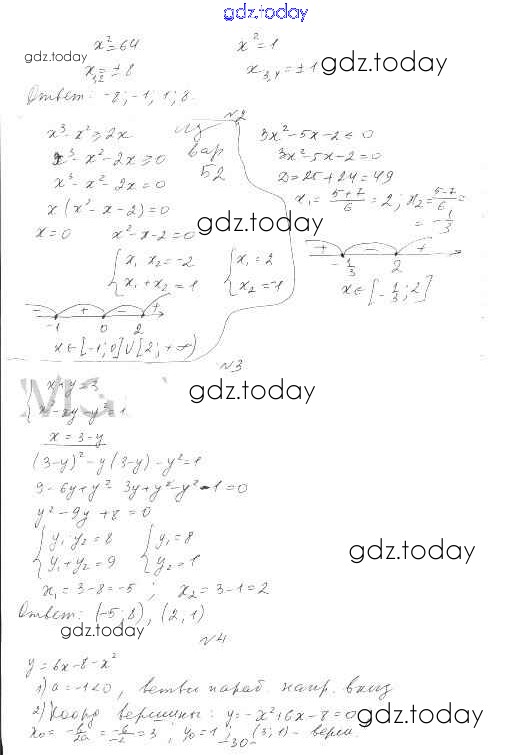 gdz.today
x²=64
x²=1
gdz.today
x₁,₂=±8
x₃,₄=±1
gdz.today
Ответ: -8; -1; 1; 8.
№2
x³-x²≥2x
из
вар
52
x³-x²-2x≥0
x³-x²-2x=0
x(x²-x-2)=0
x=0 x²-x-2=0
{x₁ x₂=-2
x₁+x₂=1
{x₁=2
x₂=-1
+ - +
-1 0 2
x∈[-1;0]∪[2;+∞)
3x²-5x-2≤0
3x²-5x-2=0
D=25+24=49
x₁=(5+7)/6=2; x₂=(5-7)/6=
=-1/3
gdz.today
+ - +
-1/3 2
x∈[-1/3;2]
№3
{x+y=3
x²-xy-y²=1
gdz.today
x=3-y
(3-y)²-y(3-y)-y²=1
9-6y+y²-3y+y²-y²-1=0
y²-9y+8=0
{y₁y₂=8
y₁+y₂=9
{y₁=8
y₂=1
gdz.today
x₁=3-8=-5; x₂=3-1=2
Ответ: (-5;8), (2,1)
gdz.today
№4
y=6x-8-x²
1) a=-1<0, ветви параб. напр. вниз
2) Коорд вершины: y=-x²+6x-8=0
gdz.today
x₀=-b/2a=-6/-2=3; y₀=1; (3;1)- верш.
-30-